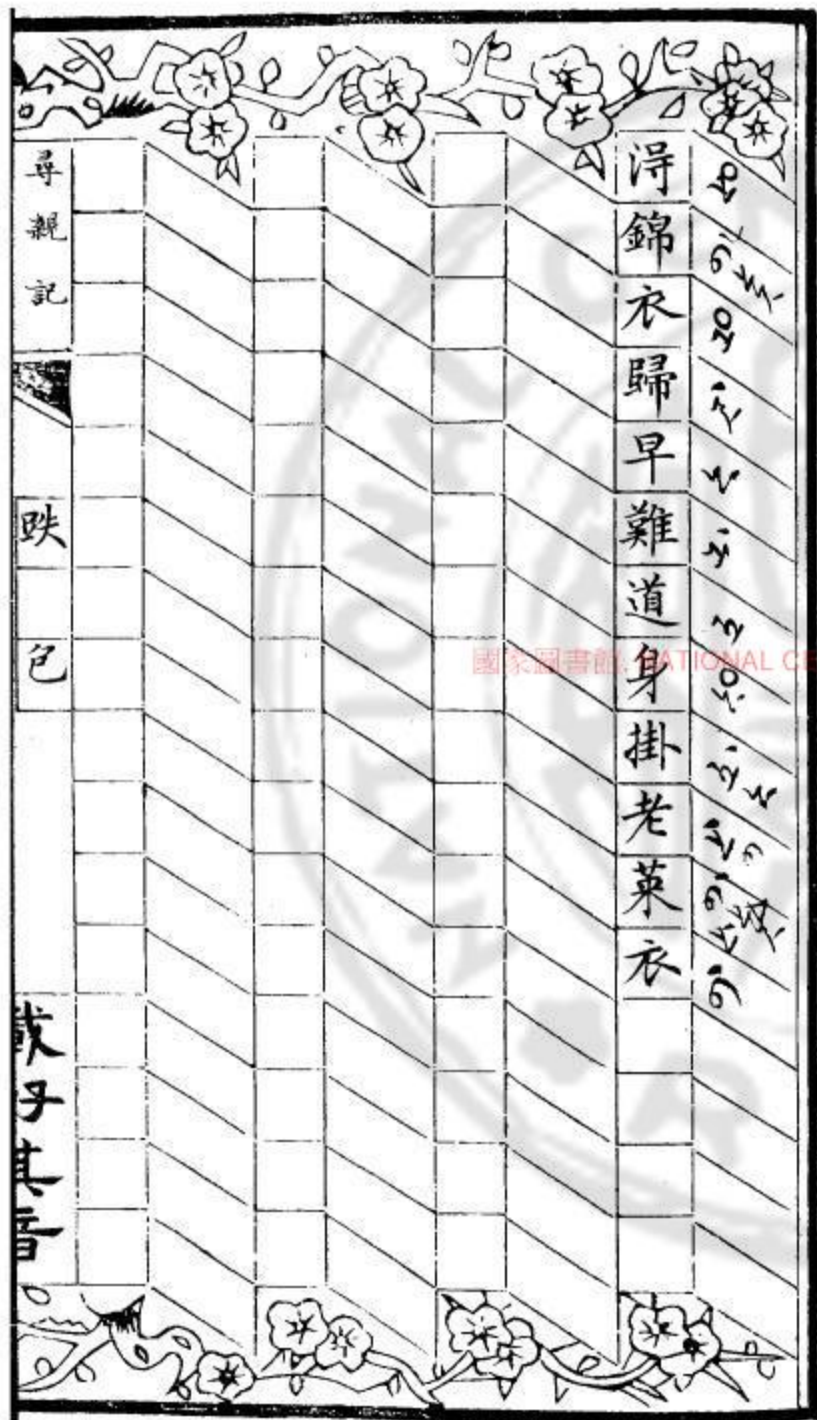 淂錦衣歸早難道身掛老萊衣
尋親記
跌包
載好其音
國家圖書館 NATIONAL CE